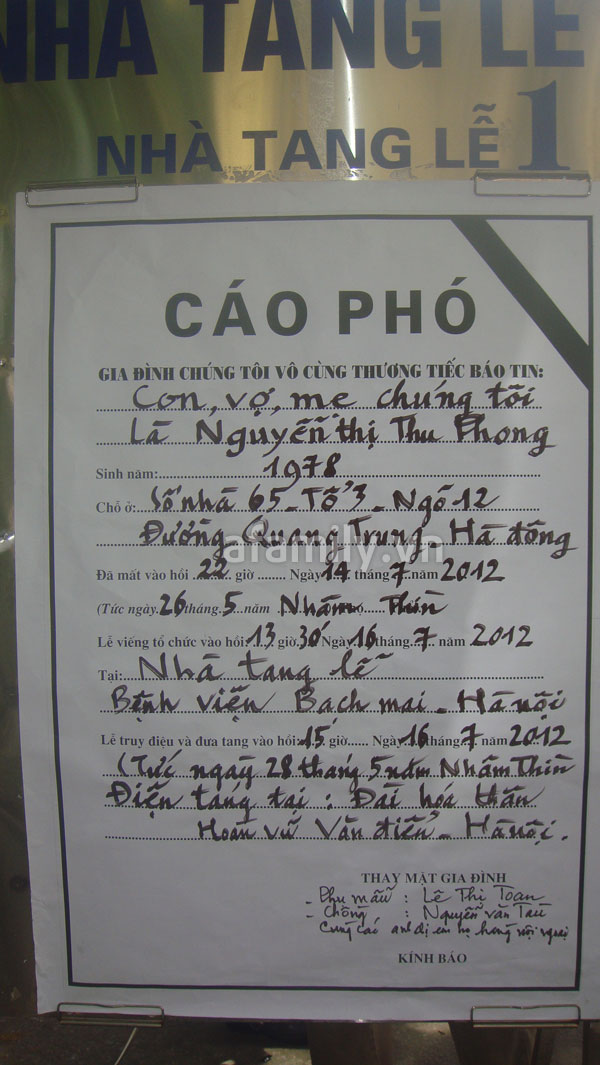 NHÀ TANG LỄ
NHÀ TANG LỄ 1
CÁO PHÓ
GIA ĐÌNH CHÚNG TÔI VÔ CÙNG THƯƠNG TIẾC BÁO TIN:
Con, vợ, mẹ chúng tôi
Là Nguyễn thị Thu Phong
Sinh năm: 1978
Chỗ ở: Số nhà 65 - Tổ 3 - Ngõ 12
Đường Quang Trung - Hà đông
afamily.vn
Đã mất vào hồi 22 giờ ........ Ngày 14 tháng 7 năm 2012
(Tức ngày 26 tháng 5 năm Nhâm Thìn
Lễ viếng tổ chức vào hồi: 13 giờ 30' Ngày 16 tháng 7 năm 2012
Tại: Nhà tang lễ
Bệnh viện Bạch mai - Hà nội
Lễ truy điệu và đưa tang vào hồi 15 giờ ...... Ngày 16 tháng 7 năm 2012
(Tức ngày 28 tháng 5 năm Nhâm Thìn
Điện táng tại : Đài hóa thân
Hoàn vũ Văn điển - Hà nội.
THAY MẶT GIA ĐÌNH
- Phụ mẫu : Lê Thị Toan
- Chồng : Nguyễn văn Tàu
Cùng các anh chị em họ hàng nội ngoại
KÍNH BÁO